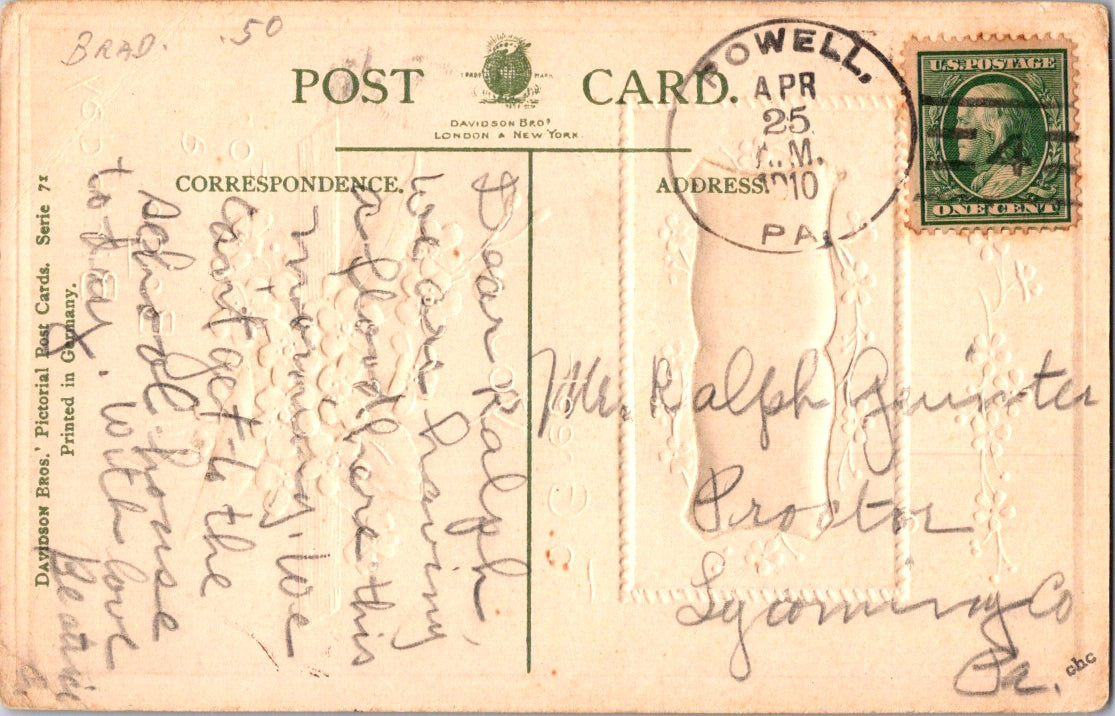 BRAD. .50
POST CARD.
TRADE MARK
DAVIDSON BROS
LONDON & NEW YORK.
CORRESPONDENCE.
ADDRESS
POWELL,
APR
25
A.M.
1910
PA.
U.S. POSTAGE
ONE CENT
4
Dear Ralph,
We are having
a flood here this
morning. We
can't get to the
school house
to-day. With love
Beatrice
Mr. Ralph
Proctor
Lycoming Co
Pa.
chc
DAVIDSON BROS.' Pictorial Post Cards. Serie 71
Printed in Germany.